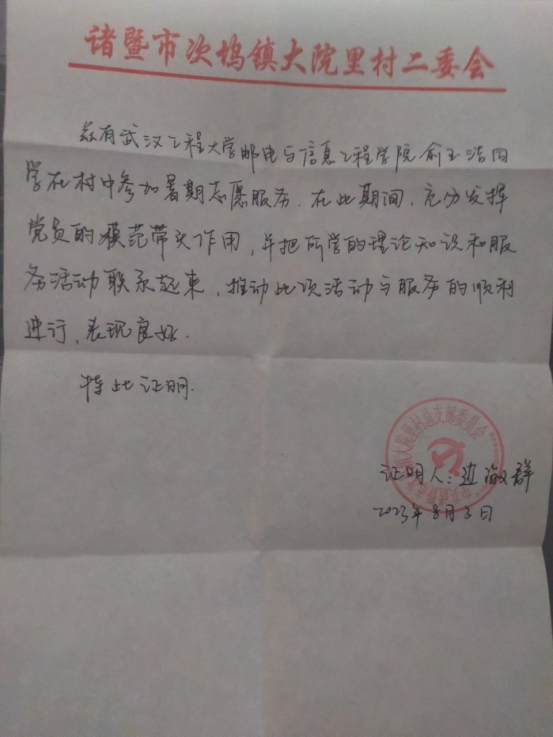 诸暨市次坞镇大院里村二委会
兹有武汉工程大学邮电与信息工程学院俞玉洁同
学在村中参加暑期志愿服务.在此期间,充分发挥
党员的模范带头作用,并把所学的理论知识和服
务活动联系起来,推动此项活动与服务的顺利
进行,表现良好.
特此证明.
证明人:边海群
2023年8月3日